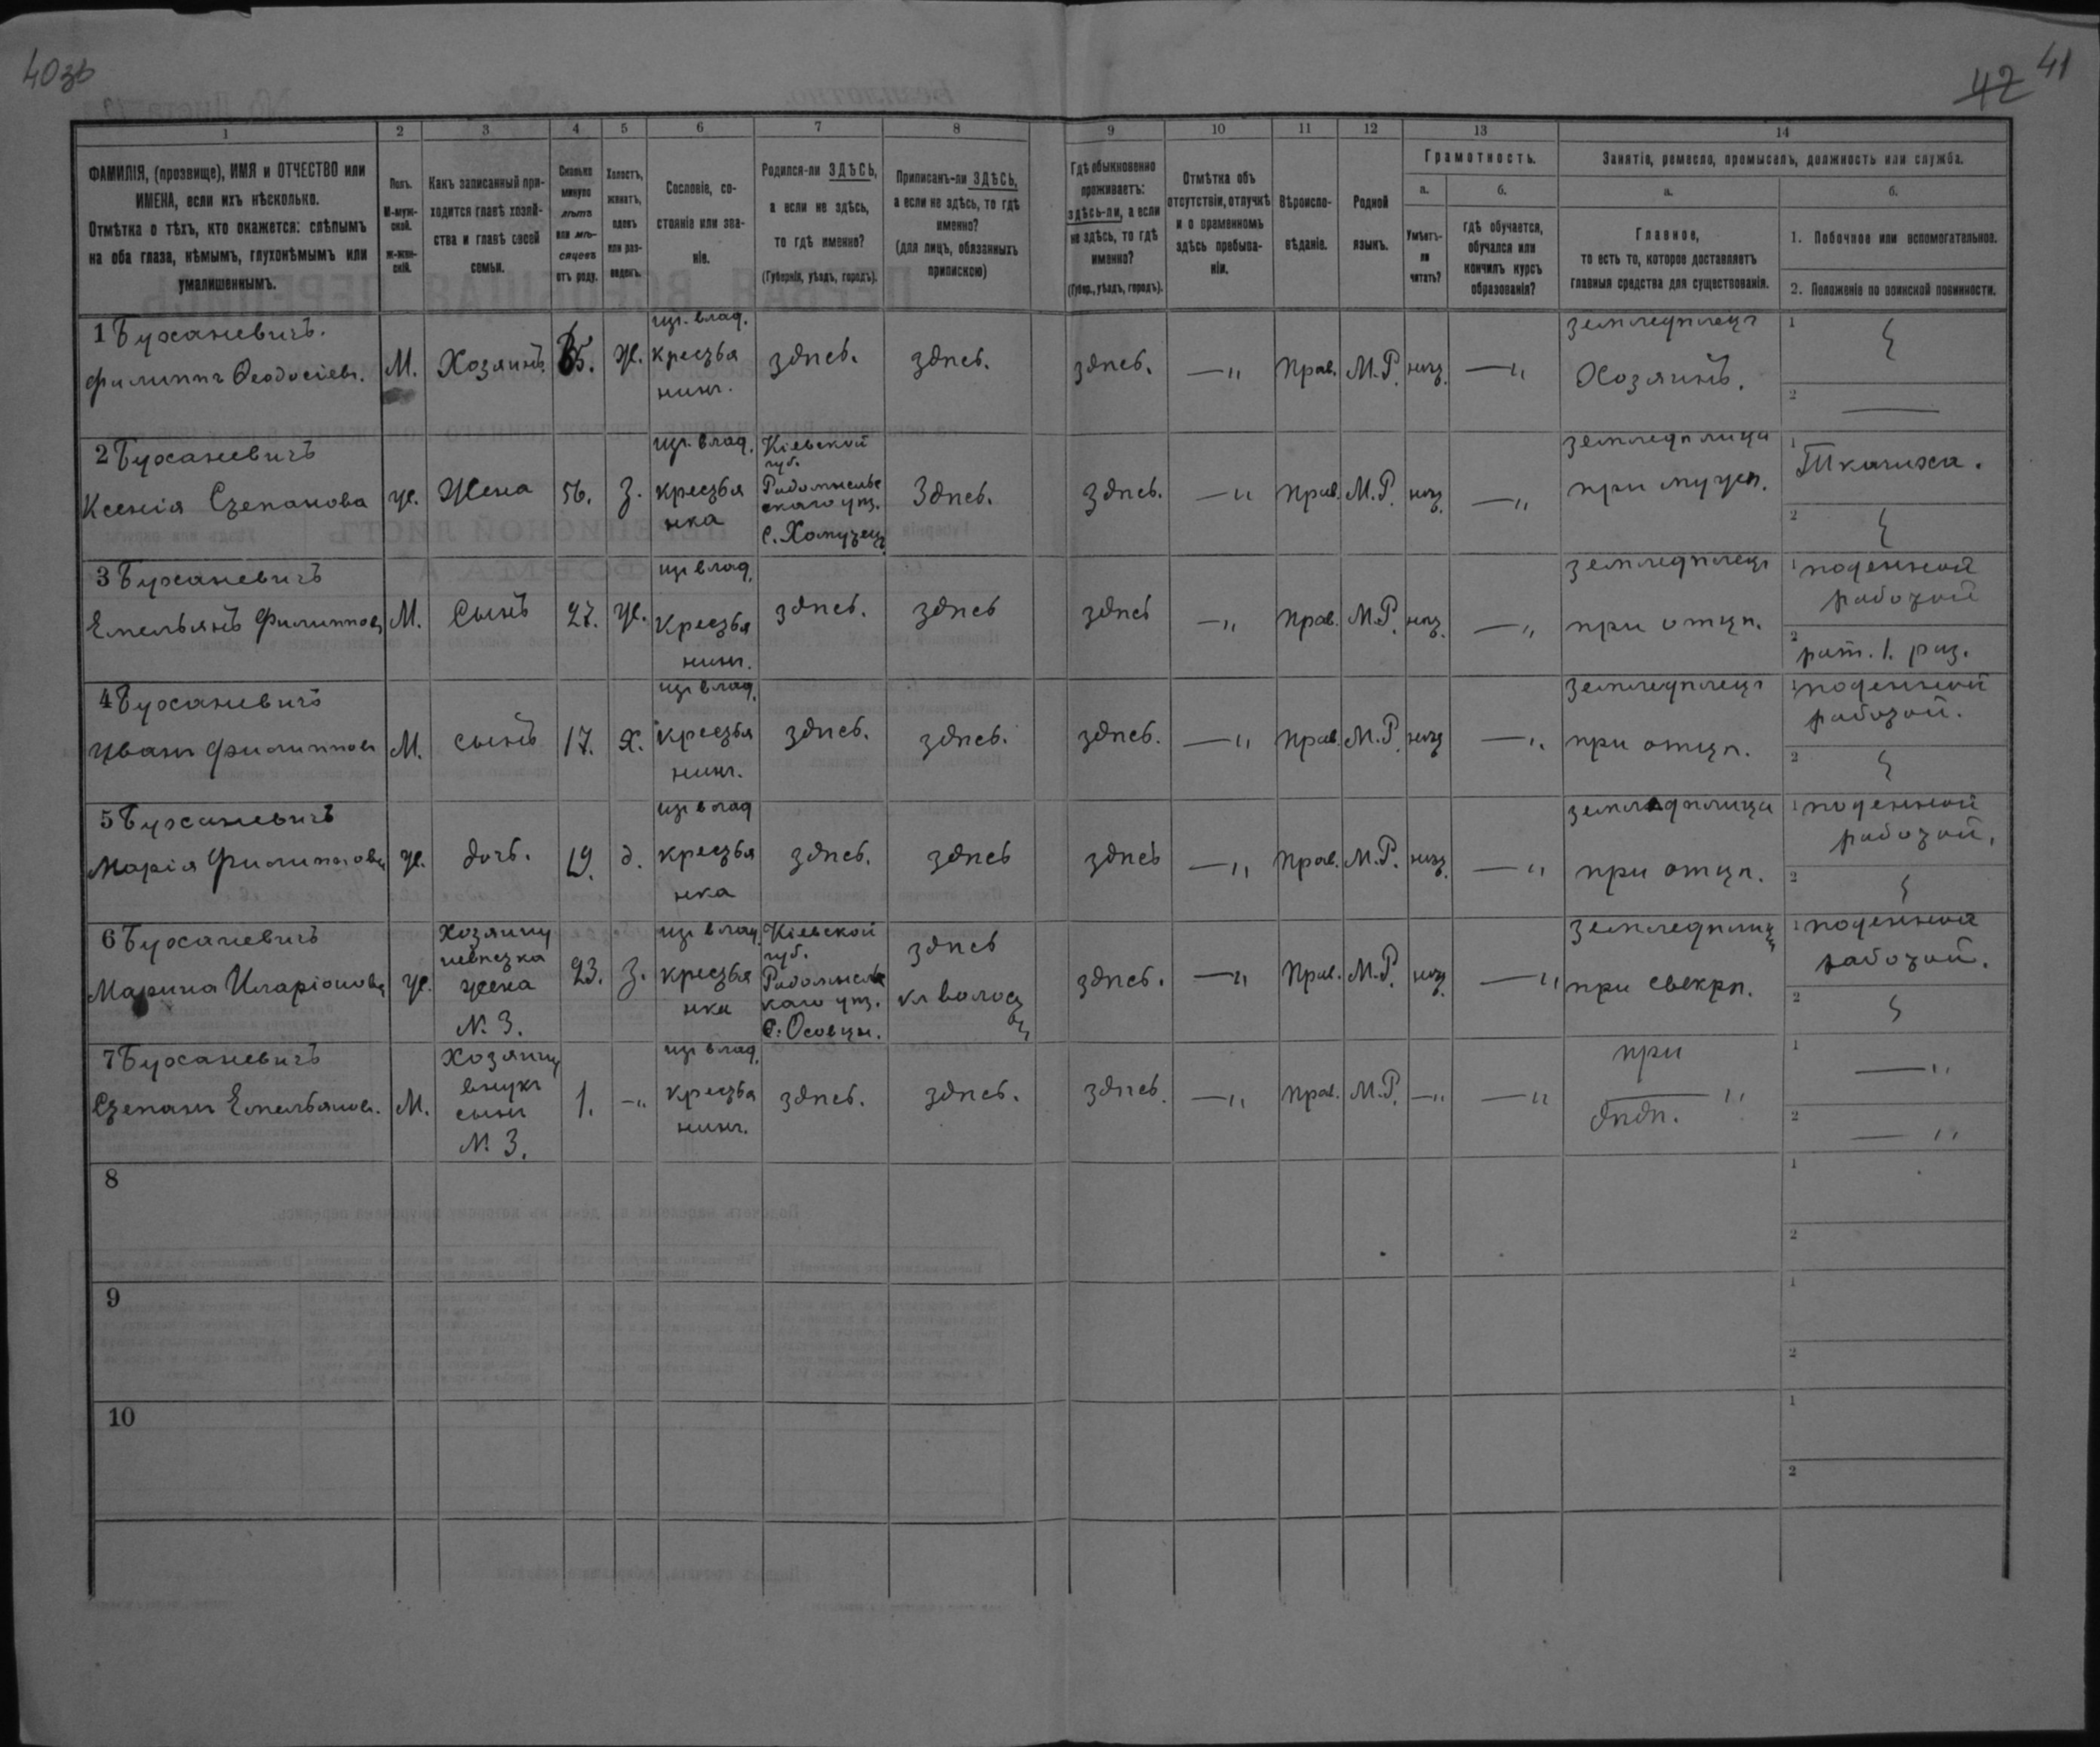 40зв
42 41
1 2 3 4 5 6 7 8 9 10 11 12 13 14
ФАМИЛІЯ, (прозвище), ИМЯ и ОТЧЕСТВО или
ИМЕНА, если ихъ нѣсколько.
Отмѣтка о тѣхъ, кто окажется: слѣпымъ
на оба глаза, нѣмымъ, глухонѣмымъ или
умалишеннымъ.
Полъ.
М-муж-
ской.
Ж-жен-
скій.
Какъ записанный при-
ходится главѣ хозяй-
ства и главѣ своей
семьи.
Сколько
минуло
лѣтъ
или мѣ-
сяцевъ
отъ роду.
Холостъ,
женатъ,
вдовъ
или раз-
веденъ.
Сословіе, со-
стояніе или зва-
ніе.
Родился-ли ЗДѢСЬ,
а если не здѣсь,
то гдѣ именно?
(Губернія, уѣздъ, городъ).
Приписанъ-ли ЗДѢСЬ,
а если не здѣсь, то гдѣ
именно?
(для лицъ, обязанныхъ
припискою)
Гдѣ обыкновенно
проживаетъ:
здѣсь-ли, а если
не здѣсь, то гдѣ
именно?
(Губер., уѣздъ, городъ).
Отмѣтка объ
отсутствіи, отлучкѣ
и о временномъ
здѣсь пребыва-
ніи.
Вѣроиспо-
вѣданіе.
Родной
языкъ.
Грамотность.
а. б.
Умѣетъ-
ли
читать?
гдѣ обучается,
обучался или
кончилъ курсъ
образованія?
Занятіе, ремесло, промыселъ, должность или служба.
а. б.
Главное,
то есть то, которое доставляетъ
главныя средства для существованія.
1. Побочное или вспомогательное.
2. Положеніе по воинской повинности.
1 Буханевичъ.
Филиппъ Ѳеодосіевъ.
М.
Хозяинъ
Ж.
из. влад.
крестья
нинъ.
здѣсь.
здѣсь.
здѣсь.
—"
Прав.
М.Р.
нѣт.
—"
земледѣлецъ
Хозяинъ.
1
2 —
2 Буханевичъ
Ксенія Степанова
Ж.
Жена
56.
З.
из. влад.
крестья
нка
Кіевской
губ.
Радомысльс
скаго уѣз.
с. Хомутец
Здѣсь.
Здѣсь.
—"
Прав.
М.Р.
нѣт.
—"
земледѣлица
при мужѣ.
1 Ткачиха.
2
3 Буханевичъ
Емельянъ Филиппов
М.
Сынъ
27.
Ж.
из влад.
Крестья
нинъ.
здѣсь.
здѣсь
здѣсь
—"
Прав.
М.Р.
нѣт.
—"
земледѣлецъ
при отцѣ.
1 поденной
работой
2 рат. 1. раз.
4 Буханевичъ
Иванъ Филиппов
М.
сынъ
17.
Х.
из влад.
крестья
нинъ.
здѣсь.
здѣсь.
здѣсь.
—"
Прав.
М.Р.
нѣт
—"
земледѣлецъ
при отцѣ.
1 поденной
работой.
2
5 Буханевичъ
Марія Филиппова
Ж.
дочь.
19.
д.
из влад
крестья
нка
здѣсь.
здѣсь
здѣсь
—"
Прав.
М.Р.
нѣт.
—"
земледѣлица
при отцѣ.
1 поденной
работой.
2
6 Буханевичъ
Марина Иларіонова
Ж.
Хозяину
невѣстка
жена
№ 3.
23.
З.
из влад.
крестья
нка
Кіевской
губ.
Радомысльс
каго уѣз.
с. Осовцы.
здѣсь
къ волост
здѣсь.
—"
Прав.
М.Р.
нѣт.
—"
земледѣлица
при свекрѣ.
1 поденной
работой.
2
7 Буханевичъ
Степанъ Емельянов.
М.
Хозяину
внукъ
сынъ
№ 3.
1.
—"
из влад.
крестья
нинъ.
здѣсь.
здѣсь.
здѣсь.
—"
Прав.
М.Р.
—"
—"
при
дѣдѣ. "
1 —"
2 —"
8
1
2
9
1
2
10
1
2